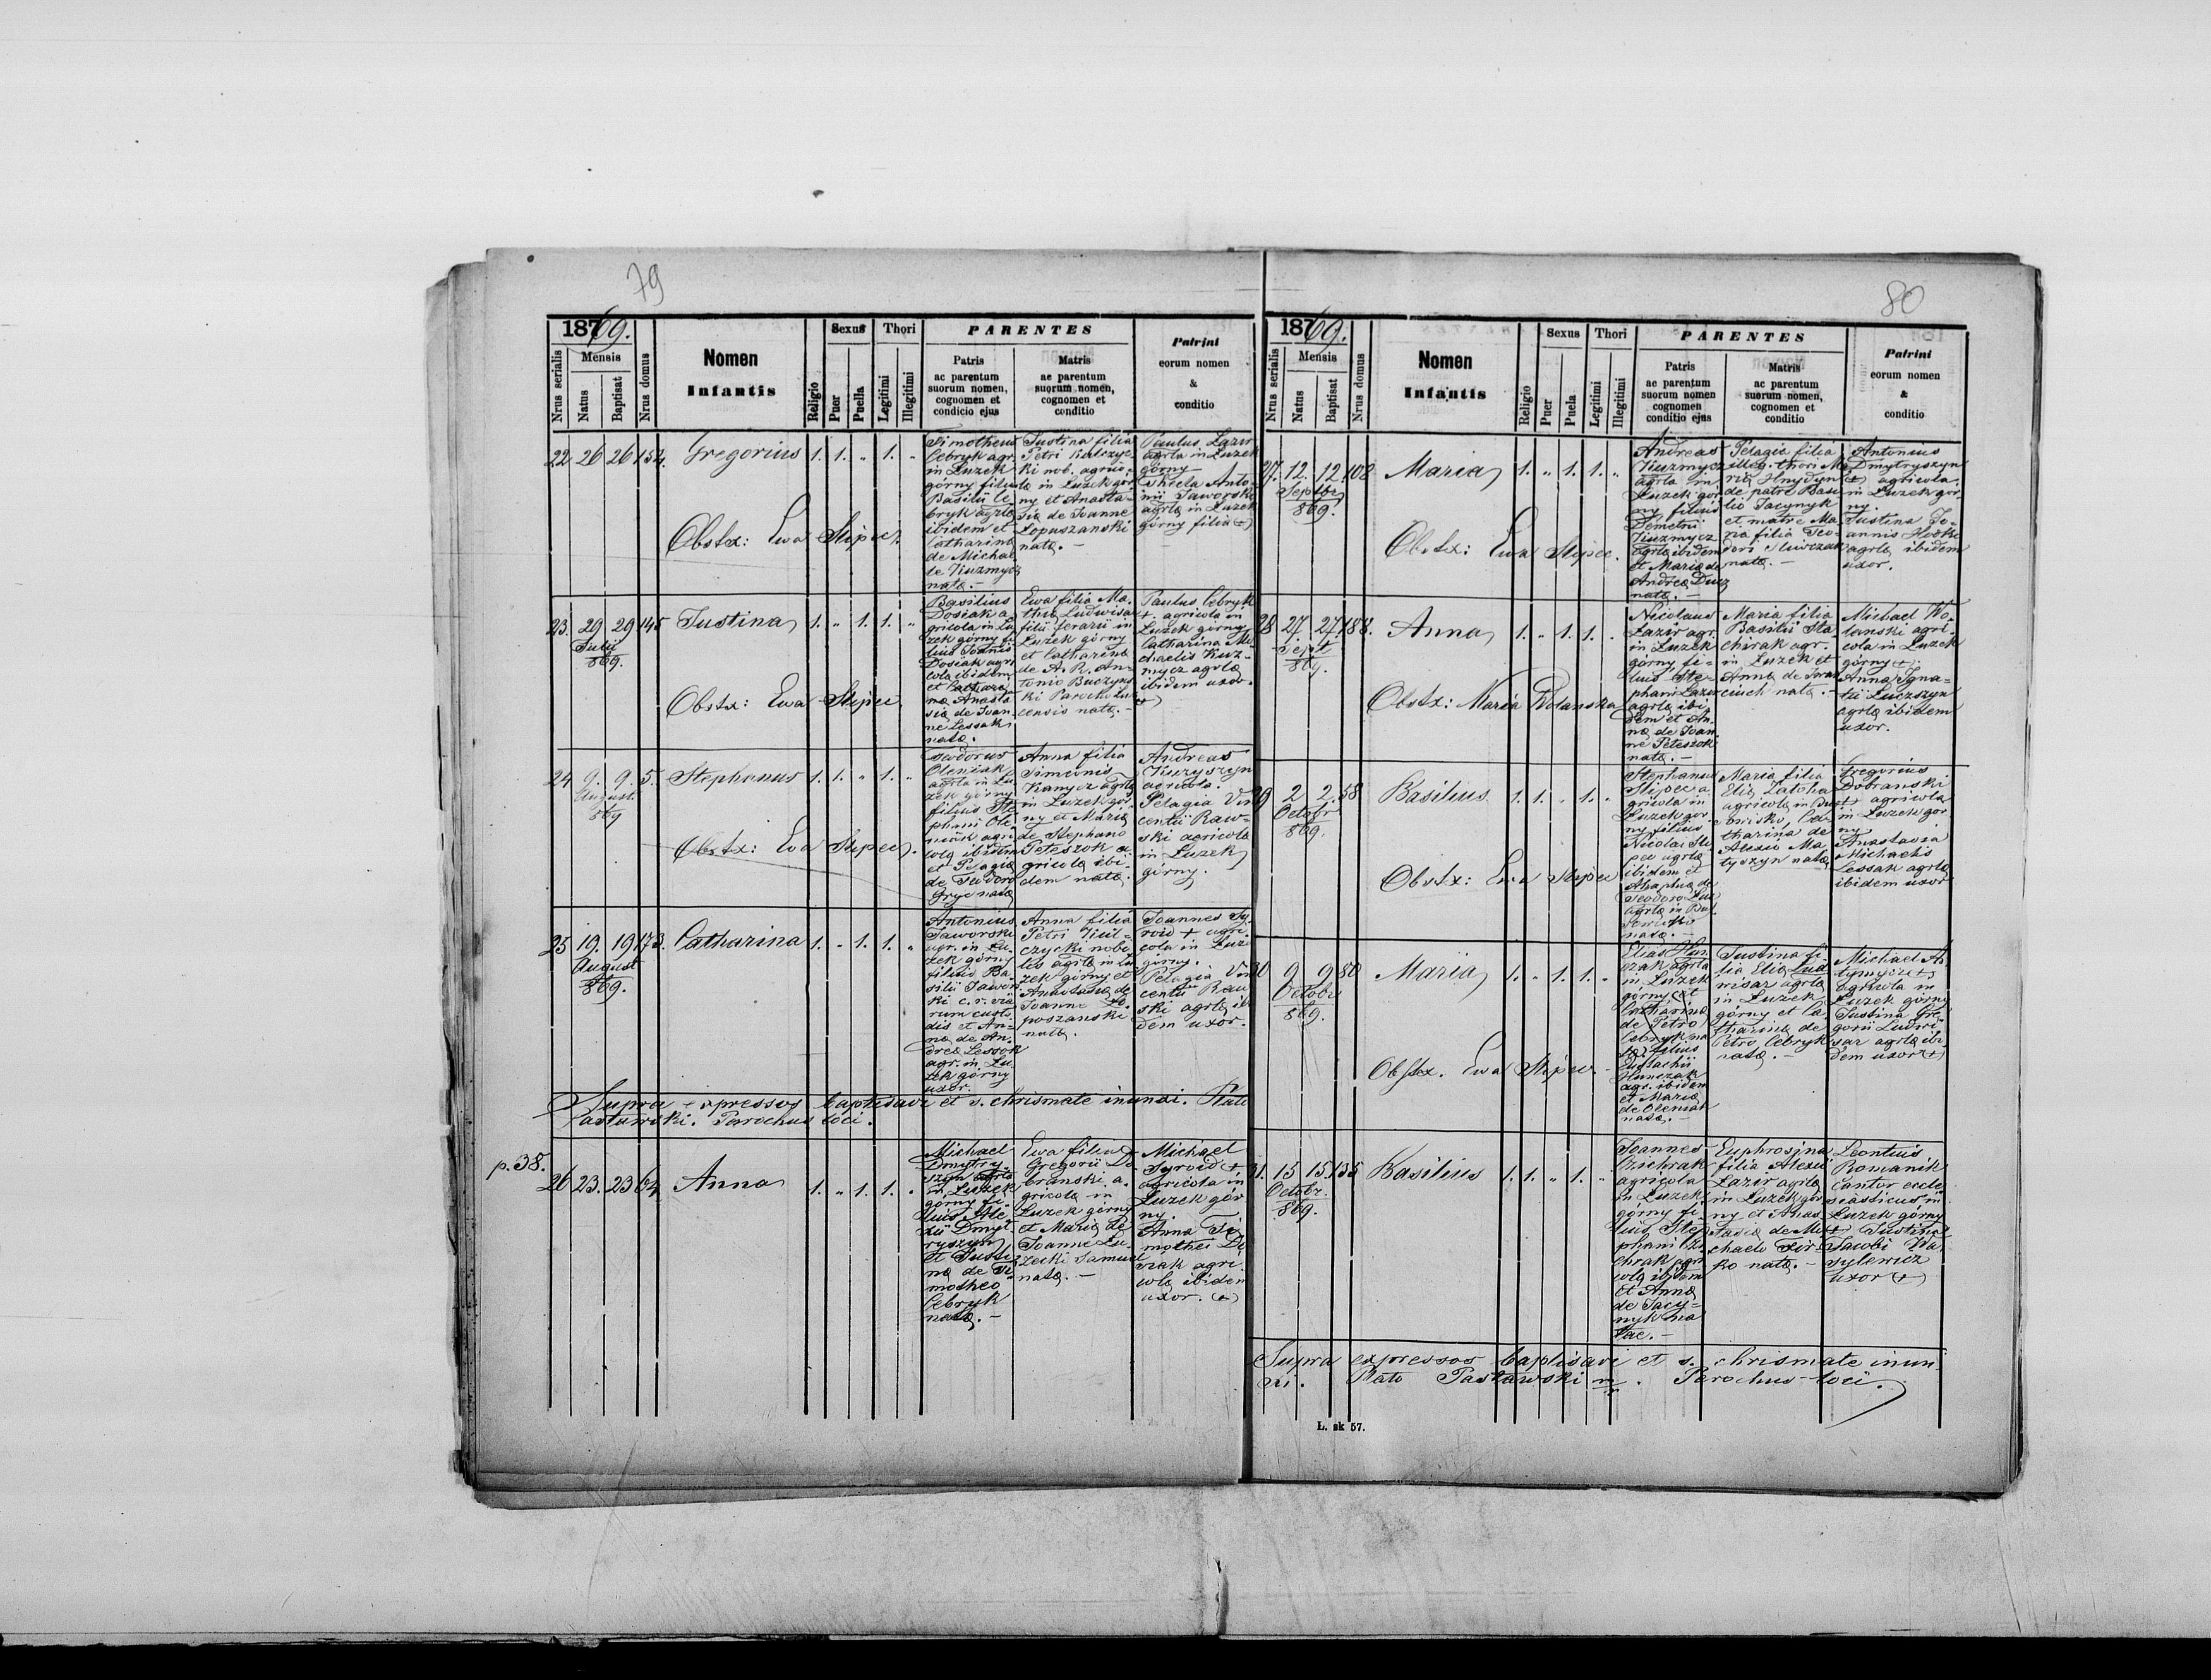 79
1869.
Nrus serialis
Mensis
Natus
Baptisat
Nrus domus
Nomen
Infantis
Religio
Sexus
Puer
Puella
Thori
Legitimi
Illegitimi
PARENTES
Patris
ac parentum
suorum nomen,
cognomen et
condicio ejus
Matris
ac parentum
suorum nomen,
cognomen et
conditio
Patrini
eorum nomen
&
conditio
22 26 26 154. Gregorius 1. 1. " 1. "
Obstx: Ewa Stipec.
Timotheus
Cebryk agr.
in Luzek
górny filius
Basilii Ce-
bryk agrlæ
ibidem et
Catharinæ
de Michae-
le Kuzmycz
natæ.—
Justina filia
Petri Kulczyc
ki nob. agrico-
læ in Luzek gór
ny et Anasta-
siæ de Joanne
Lopuszanski
natæ.—
Paulus Lazir
agrla in Luzek
górny
Thecla Anto-
nii Jaworski
agrlæ in Luzek
górny filia (+)
23. 29 29 145 Justina 1. " 1. 1. "
Julii
869.
Obstx: Ewa Stipec
Basilius
Dosiak a-
gricola in Lu
zek górny fi-
lius Joannis
Dosiak agri
cola ibidem
et
Anasta
siæ de Joan-
ne Lessak
natæ.
Ewa filia Ma-
thiæ Ludwisar
filii ferarii in
Luzek górny
et Catharinæ
de A. R. An-
tonio Buczyns
ki Parocho Luz
censis natæ.—
Paulus Cebryk
+ agricola in
Luzek górny
Catharina Mi-
chaelis Kuz-
mycz agrlæ
ibidem uxor.
(+)
24 9. 9. 5. Stephanus 1. 1. " 1. "
August.
869
Obstx: Ewa Stipec.
Teodorus
Oleniak
agrla in Lu
zek górny
filius Ste
phani Ole-
niak agri-
colæ ibidem
et Pelagiæ
de Teodoro
Gryc natæ
Anna filia
Simeonis
Kanycz agrlæ
in Luzek gór-
ny et Mariæ
de Stephano
Peteszok a
gricola ibi
dem natæ.
Andreas
agricola.
Pelagia Vin
centii Raw-
ski agricolæ
in Luzek
górny.
25 19. 19 173. Catharina 1. " 1. 1. "
August
869.
Antonius
Jaworski
agr. in Lu-
zek górny
filius Ba-
silii Jawors
ki c. r. via
rum custo-
dis et An-
næ de An-
drea Lessok
agr. in Lu-
zek górny
uxor.
Anna filia
Petri Kul-
czycki nobi
lis agrlæ in Lu
zek górny et
Anastasiæ de
Joanne Lo-
poszanski
natæ.
Joannes Sy-
roid + agri-
cola in Luze
górny.
Pelagia Vin
centii Raw
ski agrlæ ib
dem uxor.
Supra expressos baptisavi et s. chrismate inunxi. Plato
Pastawski. Parochus loci.
p. 38.
26 23. 23 64 Anna 1. " 1. 1. "
Michael
Dmytry-
szyn agrla
in Luzek
górny fi-
lius Ale
xii Dmyt
ryszyn
et Justi
næ de Ti-
motheo
Cebryk
natæ.—
Ewa filia
Gregorii Do
branski a-
gricolæ in
Luzek górny
et Mariæ de
Joanne Lu-
zecki Samuel
natæ.—
Michael
Syroid +
agricola in
Luzek gór
ny.
Anna Ti-
mothei Do
siak agri-
colæ ibidem
uxor. (+)
80
1869.
Nrus serialis
Mensis
Natus
Baptisat
Nrus domus
Nomen
Infantis
Religio
Sexus
Puer
Puela
Thori
Legitimi
Illegitimi
PARENTES
Patris
ac parentum
suorum nomen
cognomen
conditio ejus
Matris
ac parentum
suorum nomen,
cognomen et
conditio
Patrini
eorum nomen
&
conditio
27. 12. 12. 102 Maria 1. " 1. 1. "
Septbr
869.
Obstx: Ewa Stipec.
Andreas
Kuzmycz
agrla in
Luzek gór
ny filius
Demetrii
Kuzmycz
agrlæ ibidem
et Mariæ de
Andrea Ducz
natæ.—
Pelagia filia
illeg. thori Ma
riæ Hnydyn
de patre Basi-
lio Jacynyk
et matre Ma-
ria filia Teo-
dori
natæ.—
Antonius
Dmytryszyn
(+) agricola
in Luzek gór-
ny.
Justina Jo-
annis
agrlæ ibidem
uxor.
28 27. 27. 188. Anna 1. " 1. 1. "
Septbr
869.
Obstx: Maria Wolanska
Nicolaus
Lazir agr.
in Luzek
górny fi-
lius Ste-
phani Lazir
agrlæ ibi
dem et An-
næ de Joan-
ne Peteszok
natæ.—
Maria filia
Basilii Sta
chirak agr.
in Luzek et
Annæ de Iwas
natæ.—
Michael Wo-
lanski agri-
cola in Luzek
górny (+).
Anna Igna-
tii Luczszyn
agrlæ ibidem
uxor.
29 2 2. 58 Basilius 1. 1. " 1. "
Octobr
869.
Obstx: Ewa Stipec
Stephanus
Stipec a-
gricola in
Luzek gór-
ny filius
Nicolai Sti
pec agrlæ
ibidem et
Ahaphiæ de
Teodoro
agrlæ in
natæ.—
Maria filia
Eliæ Zatcha
agricolæ in
Ca-
tharina de
Alexio Ma
tyszyn natæ
Gregorius
Dobranski
+ agricola
in Luzek gór
ny
Anastasia
Michaelis
Lessak agrlæ
ibidem uxor
30 9 9. 80 Maria 1. " 1. 1. "
Octobr
869.
Obstx. Ewa Stipec.
Elias Hun
czak agrla
in Luzek
górny (et
Catharinæ
de Petro
Cebryk na
tæ) filius
Eustachii
Hunczak
agr. ibidem
et Mariæ
de Oleniak
natæ.—
Justina fi-
lia Eliæ Lud
wisar agrlæ
in Luzek
górny et Ca-
tharinæ de
Petro Cebryk
natæ.—
Michael
(+)
agricola in
Luzek górny
Justina Gre
gorii Ludwi
sar agrlæ ibi-
dem uxor (+)
31. 15 15. 135 Basilius 1. 1. " 1. "
Octobr.
869.
Joannes
Cichrak
agricola
in Luzek
górny fi-
lius Ste
phani Ci-
chrak agri
colæ ibidem
et Annæ
de Jacy=
nyk na
tae.—
Euphrosina
filia Alexii
Lazir agrlæ
in Luzek gór
ny et Anas
tasiæ de Mi-
chaele
natæ.—
Leontius
Romanik
cantor eccle
siasticus in
Luzek górny
+ Justina
Jacobi Wa-
sylewicz
uxor (+)
Supra expressos baptisavi et s. chrismate inun
xi. Plato Pastawski m/p. Parochus loci.
L. sk 57.